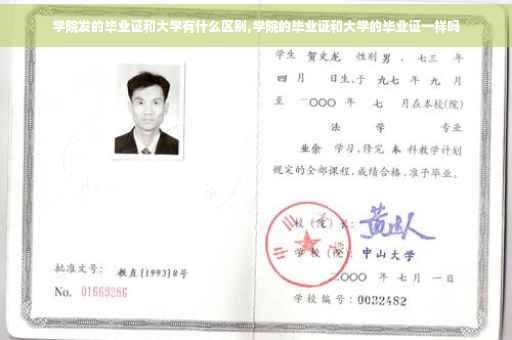 学院发的毕业证和大学有什么区别,学院的毕业证和大学的毕业证一样吗
学生 贺文龙 性别 男 , 七三 年
四 月 日生,于 九七 年 九 月
至 二〇〇〇 年 七 月在本校(院)
法 学 专业
业余 学习,修完 本 科教学计划
规定的全部课程,成绩合格,准予毕业。
校(院)长:
学 校(院): 中山大学
二〇〇〇 年 七 月 一 日
学校编号: 0032482
批准文号: 教直[1993]8号
No. 01669286